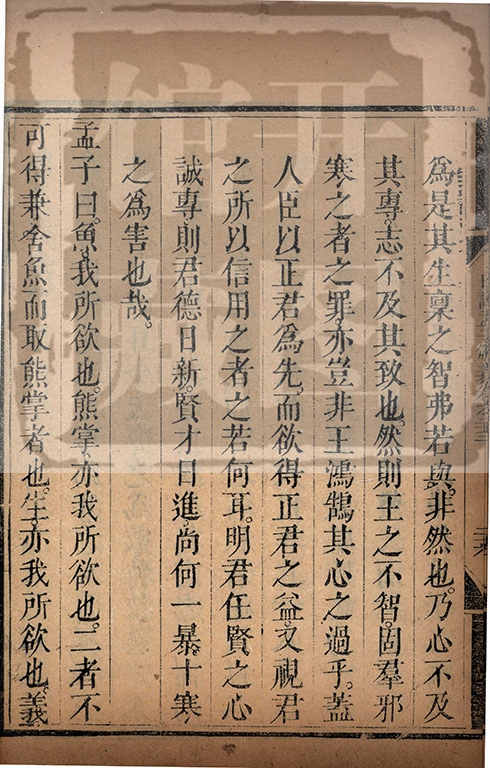 爲是其生稟之智弗若與。非然也。乃心不及
其專。志不及其致也。然則王之不智。固羣邪
寒之者之罪。亦豈非王鴻鵠其心之過乎。蓋
人臣以正君爲先。而欲得正君之益。又視君
之所以信用之者之若何耳。明君任賢之心
誠專。則君德日新。賢才日進。尚何一暴。十寒
之爲害也哉。
孟子曰。魚。我所欲也。熊掌。亦我所欲也。二者不
可得兼。舍魚而取熊掌者也。生。亦我所欲也。義